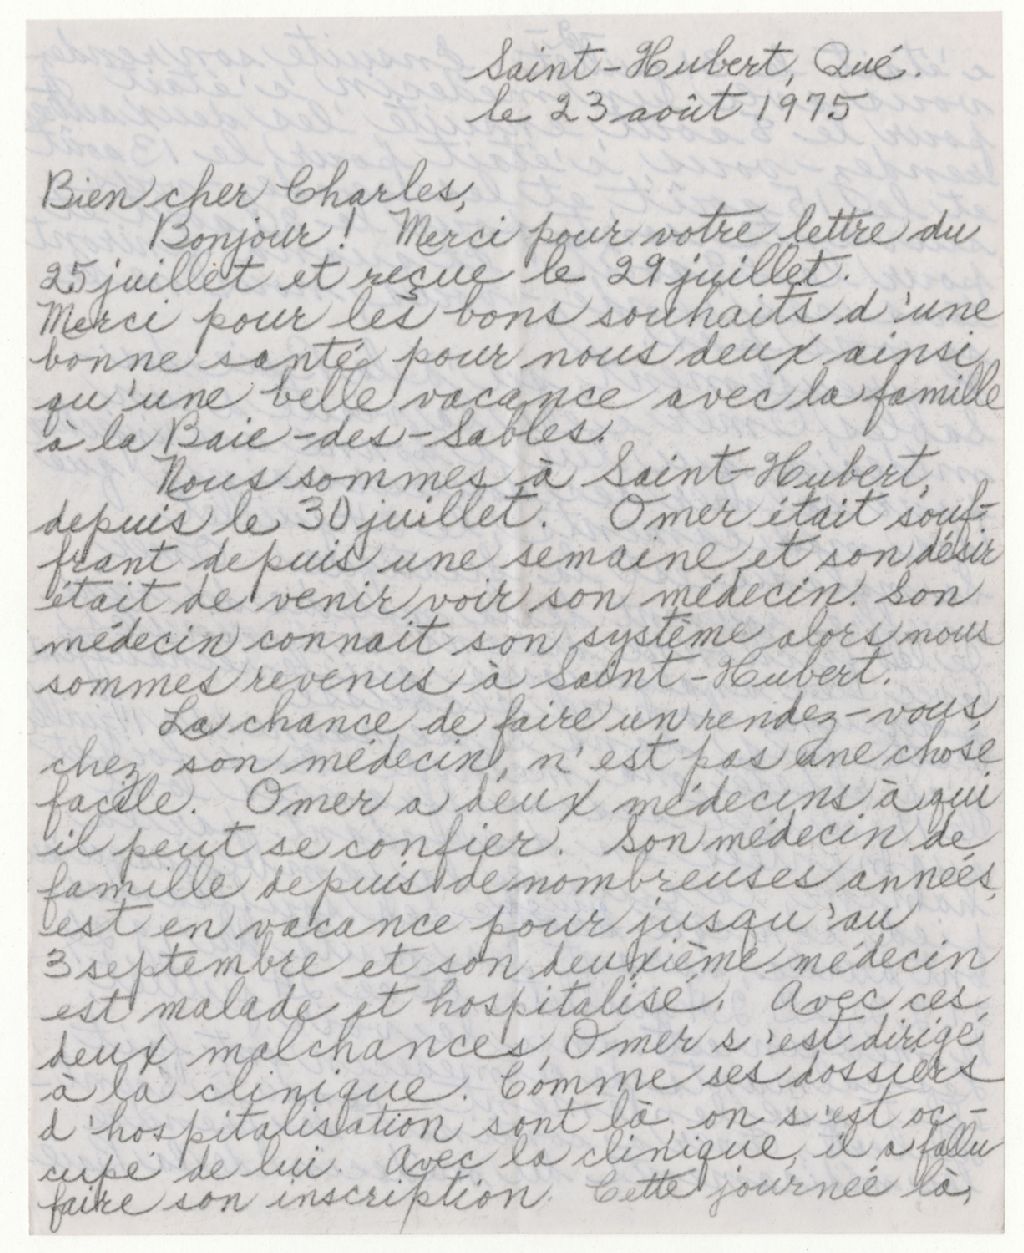 Saint-Hubert, Qué.
le 23 août 1975
Bien cher Charles,
Bonjour! Merci pour votre lettre du
25 juillet et reçue le 29 juillet.
Merci pour les bons souhaits d'une
bonne santé pour nous deux ainsi
qu'une belle vacance avec la famille
à la Baie-des-Sables.
Nous sommes à Saint-Hubert,
depuis le 30 juillet. Omer était souf-
frant depuis une semaine et son désir
était de venir voir son médecin. Son
médecin connait son système alors nous
sommes revenus à Saint-Hubert.
La chance de faire un rendez-vous
chez son médecin, n'est pas une chose
facile. Omer a deux médecins à qui
il peut se confier. Son médecin de
famille depuis de nombreuses années,
est en vacance pour jusqu'au
3 septembre et son deuxième médecin
est malade et hospitalisé. Avec ces
deux malchances, Omer s'est dirigé
à la clinique. Comme ses dossiers
d'hospitalisation sont là, on s'est oc-
cupé de lui. Avec la clinique, il a fallu
faire son inscription. Cette journée là,